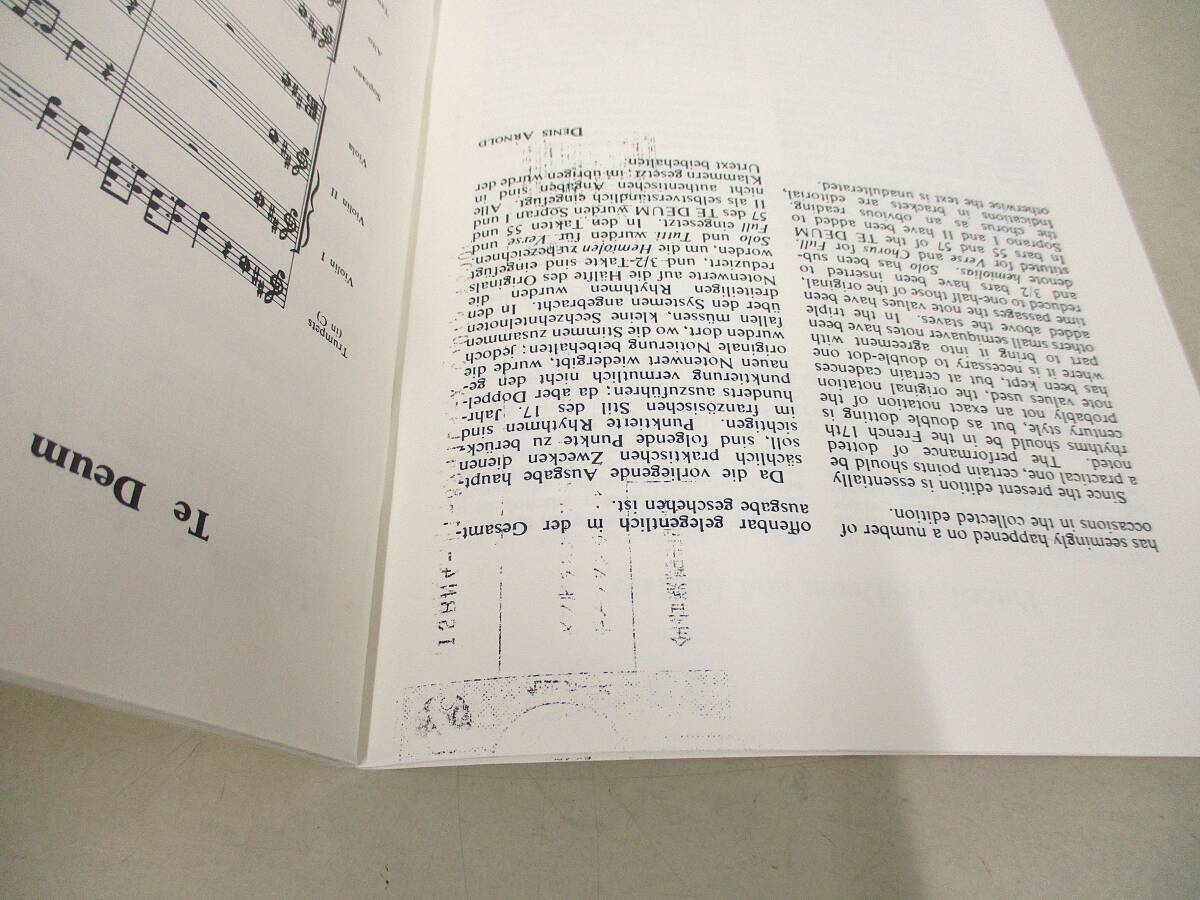 has seemingly happened on a number of
occasions in the collected edition.
Since the present edition is essentially
a practical one, certain points should be
noted. The performance of dotted
rhythms should be in the French 17th
century style, but as double dotting is
probably not an exact notation of the
note values used, the original notation
has been kept, but at certain cadences
where it is necessary to double-dot one
part to bring it into agreement with
others small semiquaver notes have been
added above the staves. In the triple
time passages the note values have been
reduced to one-half those of the original,
and 3/2 bars have been inserted to
denote hemiolas. Solo has been sub-
stituted for Verse and Chorus for Full.
In bars 55 and 57 of the TE DEUM
Soprano I and II have been added to
the chorus as an obvious reading.
Indications in brackets are editorial,
otherwise the text is unadulterated.
offenbar gelegentlich in der Gesamt-
ausgabe geschehen ist.
Da die vorliegende Ausgabe haupt-
sächlich praktischen Zwecken dienen
soll, sind folgende Punkte zu berück-
sichtigen. Punktierte Rhythmen sind
im französischen Stil des 17. Jahr-
hunderts auszuführen; da aber Doppel-
punktierung vermutlich nicht den ge-
nauen Notenwert wiedergibt, wurde die
originale Notierung beibehalten; jedoch
wurden dort, wo die Stimmen zusammen
fallen müssen, kleine Sechzehntelnoten
über den Systemen angebracht. In den
dreiteiligen Rhythmen wurden die
Notenwerte auf die Hälfte des Originals
reduziert, und 3/2-Takte sind eingefügt
worden, um die Hemiolen zu bezeichnen.
Solo und Tutti wurden für Verse und
Full eingesetzt. In den Takten 55 und
57 des TE DEUM wurden Sopran I und
II als selbstverständlich eingefügt. Alle
nicht authentischen Angaben sind in
Klammern gesetzt; im übrigen wurde der
Urtext beibehalten.
DENIS ARNOLD
Te Deum
Trumpets
(in C)
Violin I
Violin II
Viola
Soprano
Alto